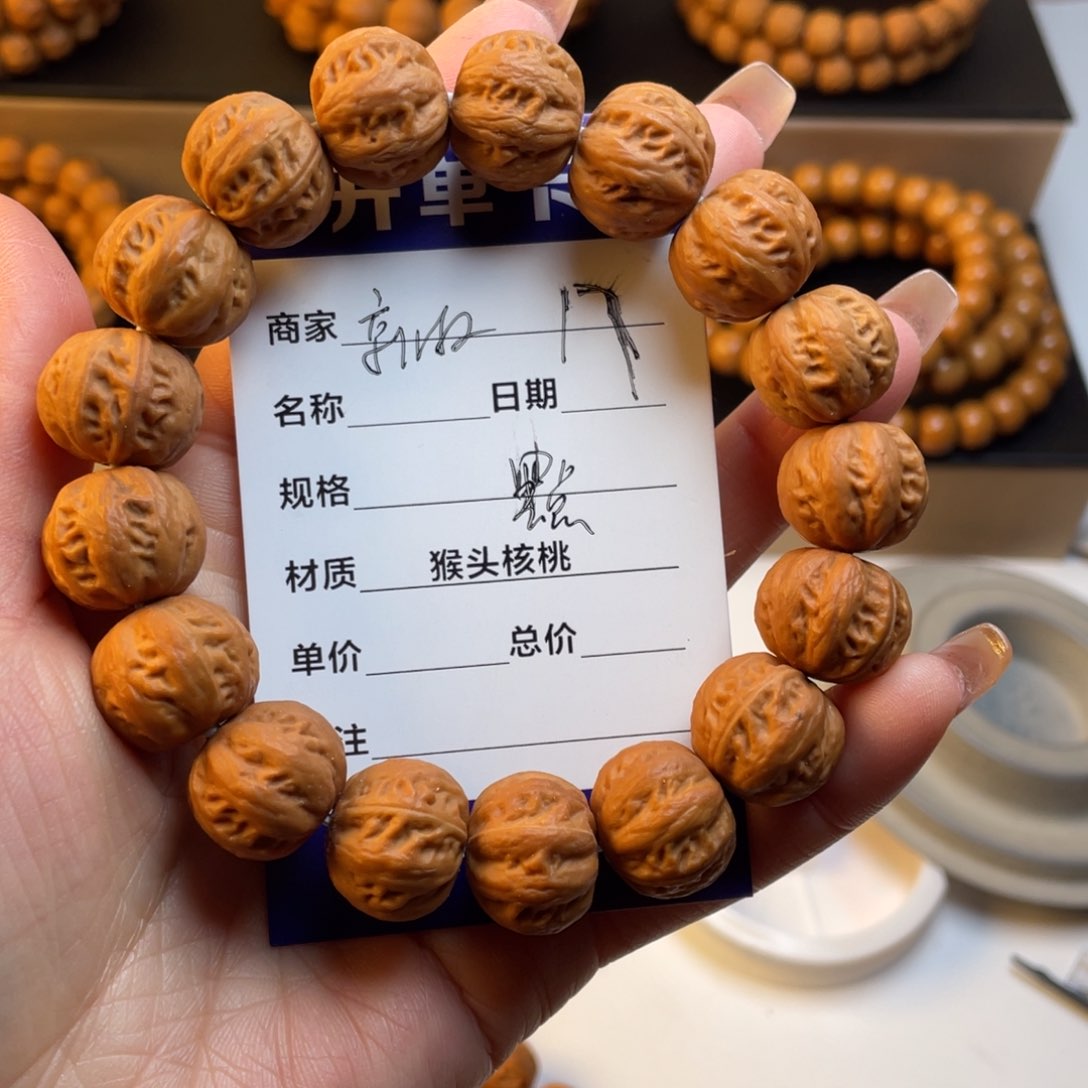 开单卡
商家
名称 日期
规格
材质 猴头核桃
单价 总价
注